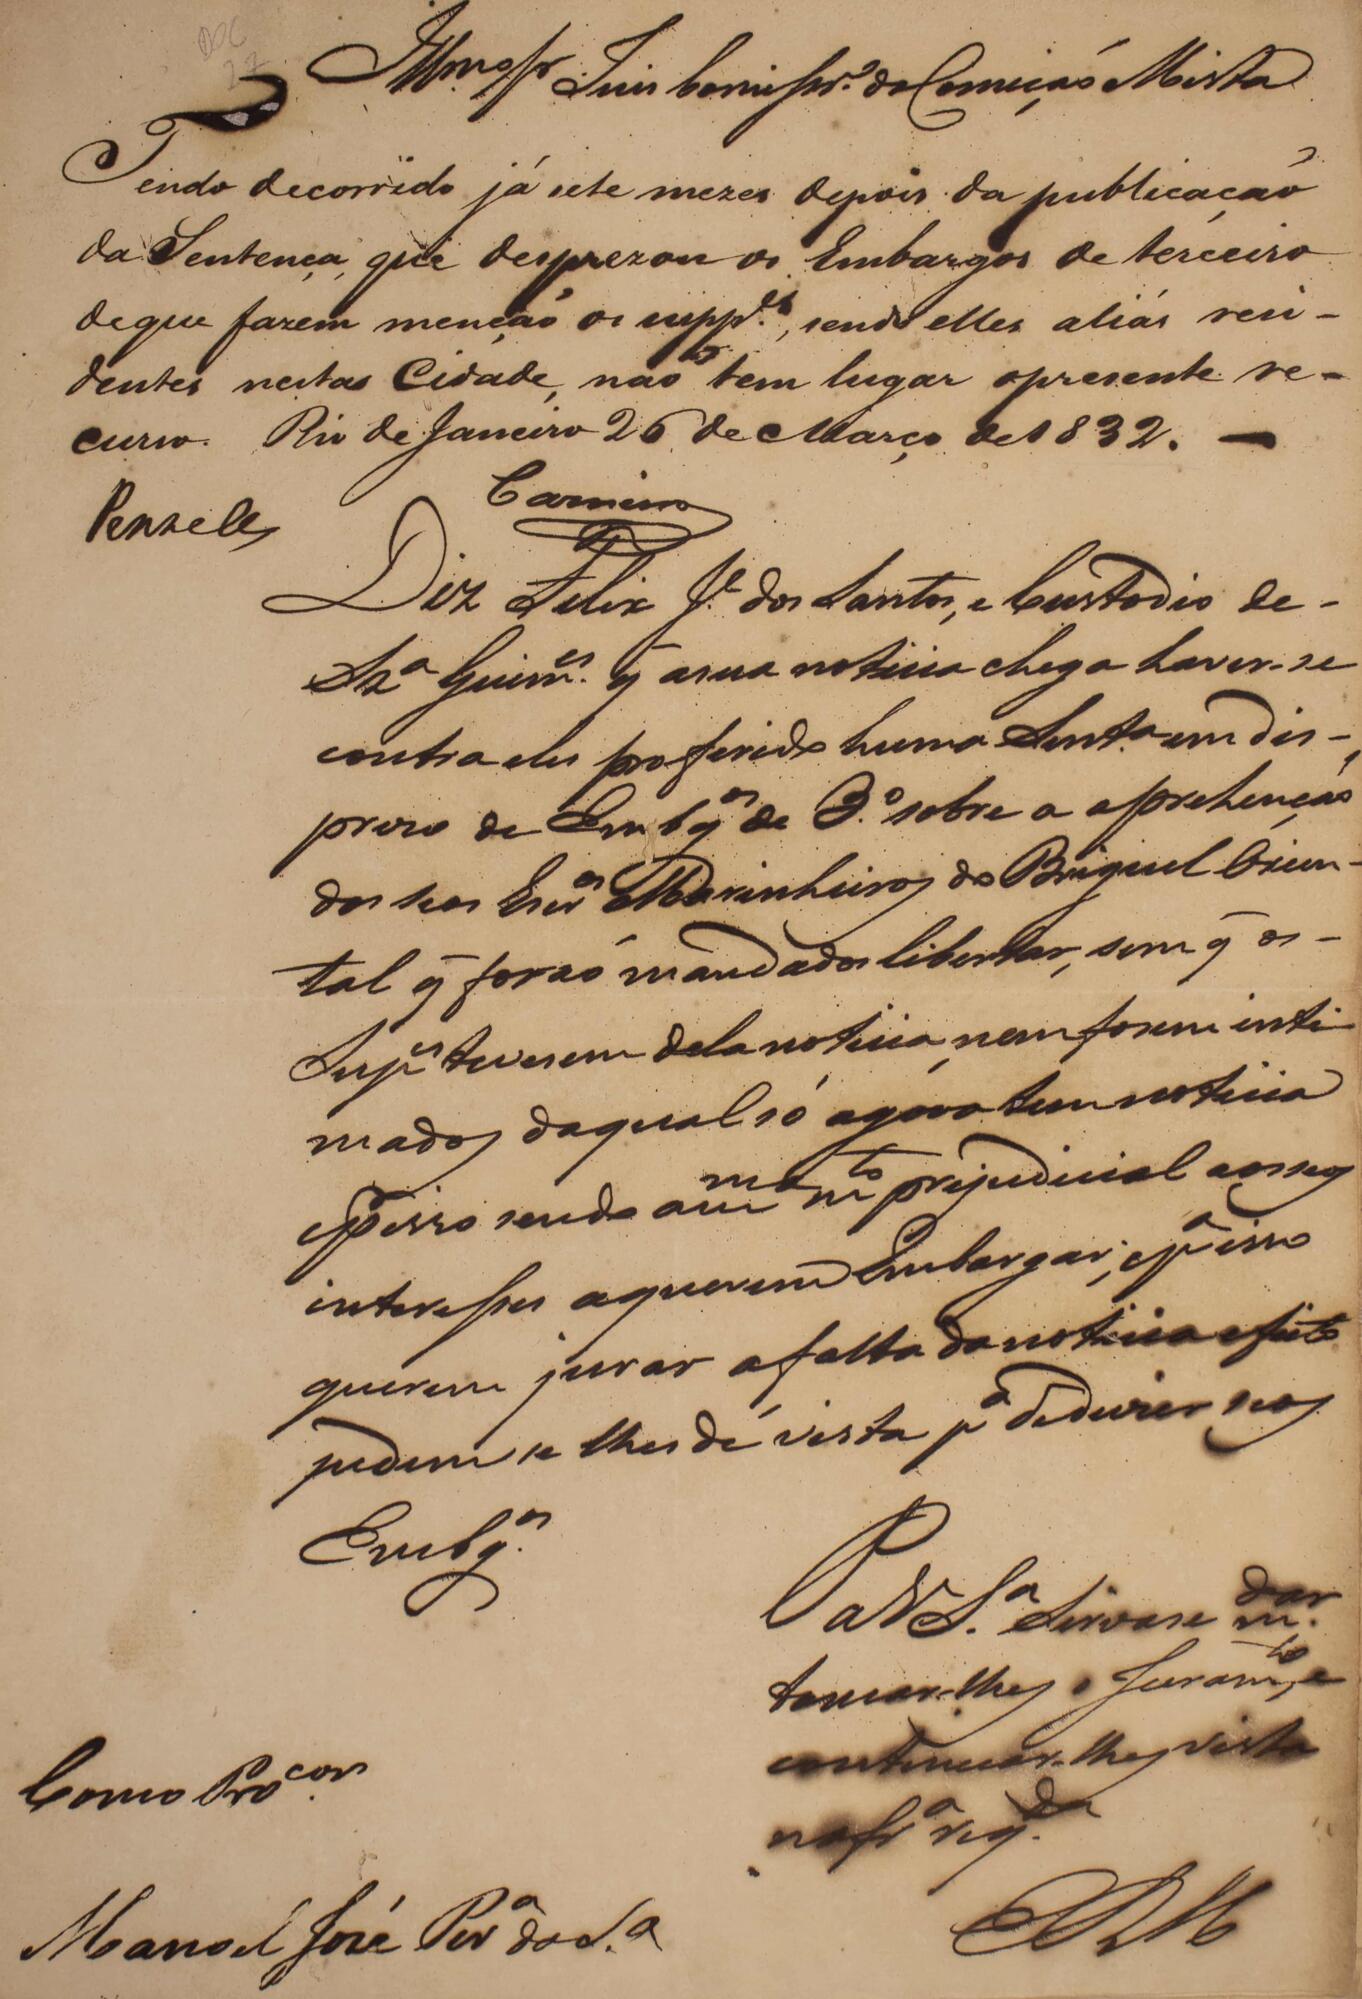 DOC
27
Illmo Sr Juis Comissro da Comição Mista
Tendo decorrido já sete mezes depois da publicação
da Sentença, que desprezou os Embargos de terceiro
de que fazem menção os suppes, sendo elles aliás resi-
dentes nesta Cidade, não tem lugar o presente re-
curso. Rio de Janeiro 26 de Março de 1832. —
Carneiro
Diz Felix Je dos Santos, e Custodio de-
Sza Guimes q̃ a sua noticia chega haver-se
contra eles proferido huma Senta em dis-
prezo de Embgos de 3o sobre a aprehenção
dos seos Escros Marinheiros do Brigue Orien-
tal q̃ forão mandados libertar, sem q̃ os-
Supes tivesem dela noticia, nem fosem inti
mados da qual só agóra tem noticia
e pr isso sendo a mma mto prejudicial aos seos
interesses a querem Embargar; e pa isso
querem jurar a falta da noticia e feito
pedem se lhes dê vista pa dedusir seos
Embgos
Pa V Sa Sirva se dar
m. tomar-lhes o Juramto, e
continuar-lhes vista
na fra reqda
E R M
Como Procor
Manoel José Pera da Sa